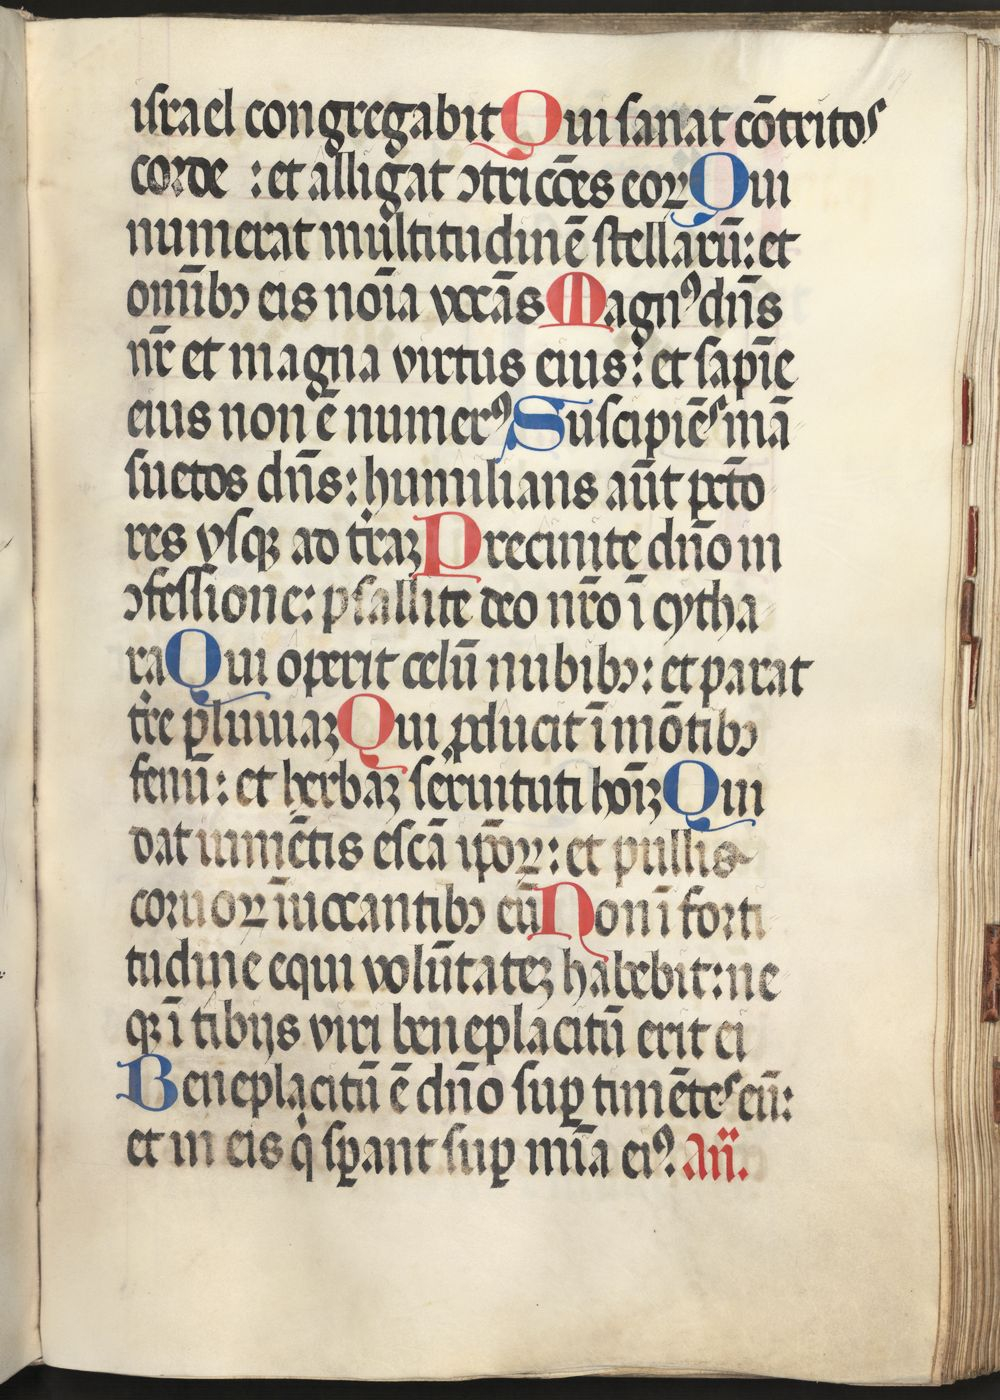 israel congregabit Qui sanat cōtritos
corde : et alligat ↄtricc̄ēs eoꝝ Qui
numerat multitudinē stellarū: et
om̄ibꝫ eis noīa vocās Magnꝰ dn̄s
nr̄ et magna virtus eius: et sapīe
eius non ē numerꝰ Suscipiēs mā
suetos dn̄s: humilians aūt pctō
res vsqꝫ ad trāꝫ Precinite dn̄o in
ↄfessione: psallite deo nr̄o ī cytha
ra Qui operit celū nubibꝫ: et parat
tr̄e pluuiaꝫ Qui ꝓducit ī mōtibꝫ
fenū: et herbāꝫ seruituti hoīꝫ Qui
dat iumētis escā ip̄oꝝ: et pullis
coruoꝝ īuocantibꝫ eū Non ī forti
tudine equi volūtateꝫ habebit: ne
qꝫ ī tibijs viri beneplacitū erit ei
Beneplacitū ē dn̄o suꝑ timētes eū:
et in eis q̇ sꝑant suꝑ mīa eiꝰ. Añ.